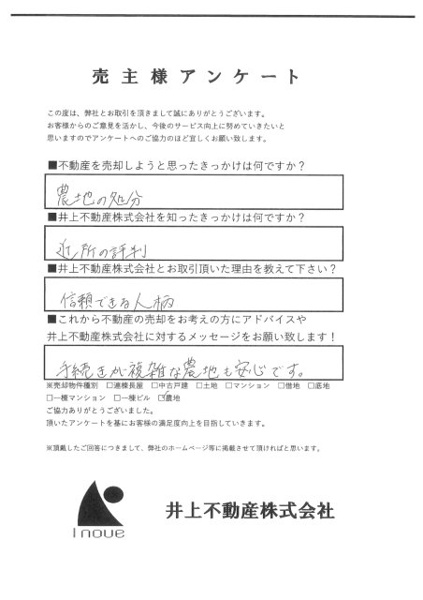 売主様アンケート
この度は、弊社とお取引を頂きまして誠にありがとうございます。
お客様からのご意見を活かし、今後のサービス向上に努めていきたいと
思いますのでアンケートへのご協力のほど宜しくお願い致します。
■不動産を売却しようと思ったきっかけは何ですか？
農地の処分
■井上不動産株式会社を知ったきっかけは何ですか？
近所の評判
■井上不動産株式会社とお取引頂いた理由を教えて下さい？
信頼できる人柄
■これから不動産の売却をお考えの方にアドバイスや
井上不動産株式会社に対するメッセージをお願い致します！
手続きが複雑な農地も安心です。
※売却物件種別 □連棟長屋 □中古戸建 □土地 □マンション □借地 □底地
□一棟マンション □一棟ビル ☑農地
ご協力ありがとうございました。
頂いたアンケートを基にお客様の満足度向上を目指していきます。
※頂戴したご回答につきまして、弊社のホームページ等に掲載させて頂ければと思います。
Inoue
井上不動産株式会社